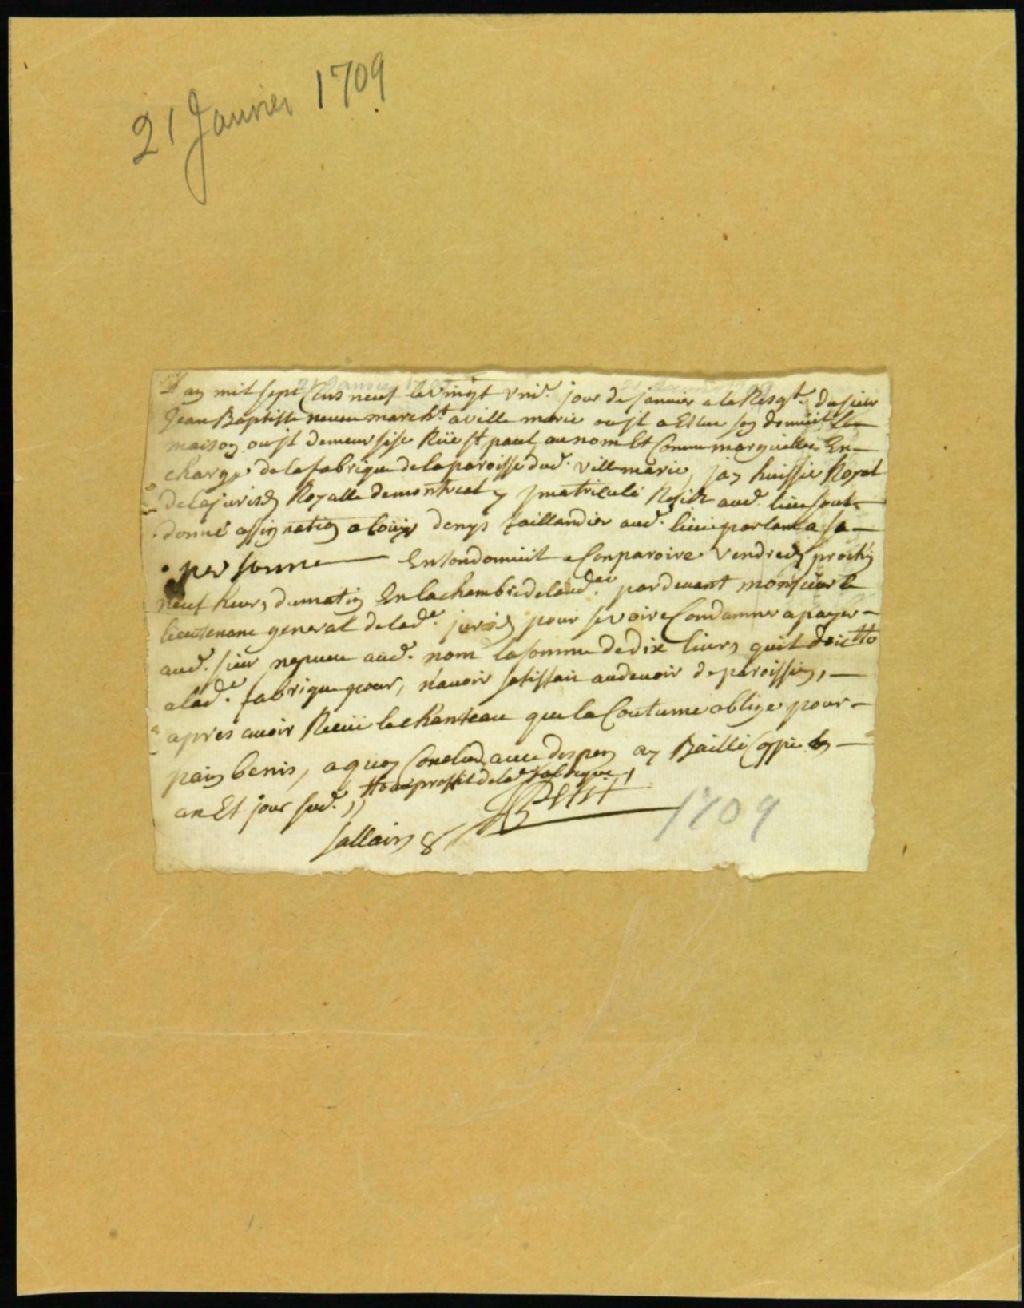 21 Janvier 1709
L'an mil sept Cens neuf le vingt uni.e jour de Janvier a la Requt. du sieur
Jean Baptiste neveu marcht. a ville marie ou il a Eslu son domicil En sa
maison ou il demeur sise Rüe st paul au nom Et Comme marguillier En
charge de la fabrique de la paroisse dud. ville marie, Jay huissier Royal
de la jurison Royalle de montreal y Jmatriculé Residt aud. lieu sous.
donné assignation a Louis denys taillandier aud. lieu parlant a sa
personne En son domicil a Comparoire vendredy prochin
neuf heures du matin En la chambre de laud.ce pardevant monsieur le
lieutenant general de lad. jurison pour se voire Condamner a payer
aud. sieur nepveu aud. nom la somme de dix livres quil doit #
a lad.e fabrique pour, n'avoir satisfait au devoir de paroissien,
apres avoir Reçüe le chanteau que la Coutume oblige pour
pain benis, a quoy Conclud avec despens ay Baillé Coppie les
an Et jour sud. //
# au proffit de la.e fabrique /
JPetit
sallair 8
1709